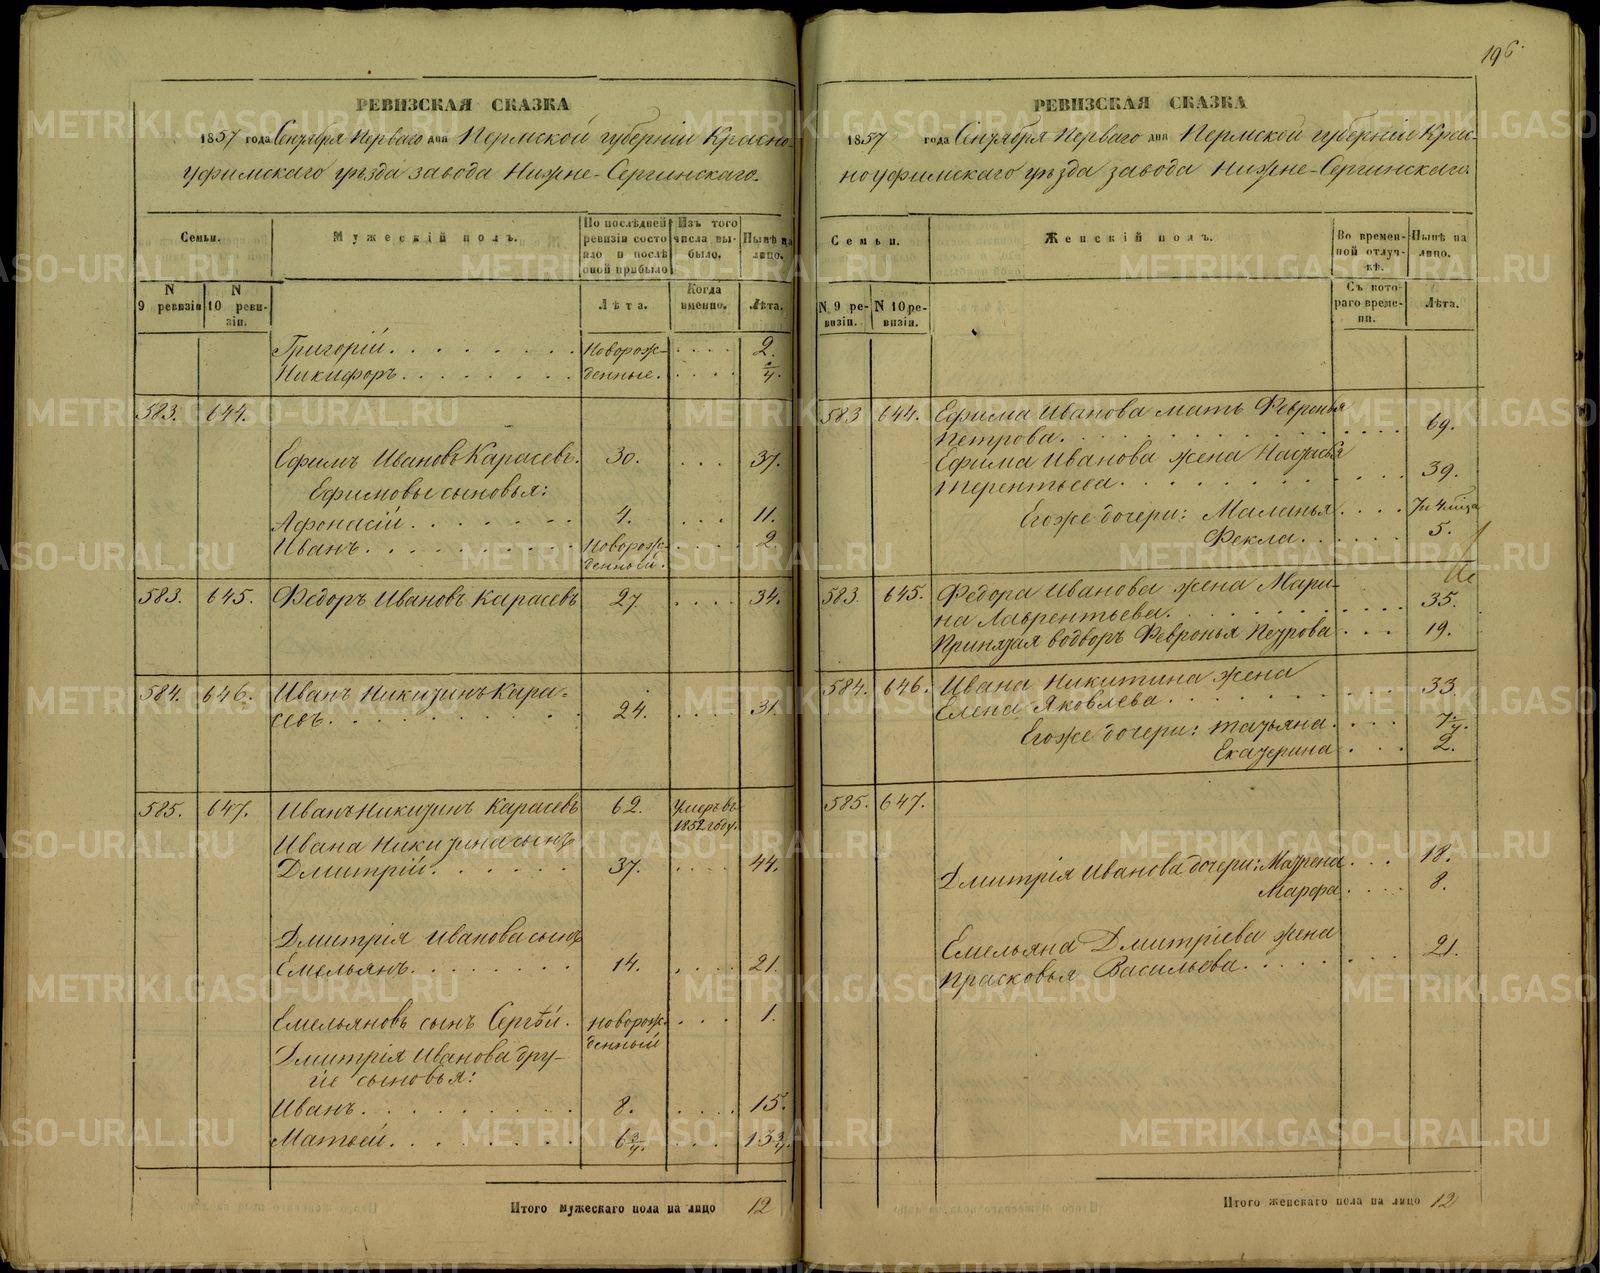 196.
РЕВИЗСКАЯ СКАЗКА
1857 года Сентября Перваго дня Пермской губерніи Красно-
уфимскаго уѣзда завода Нижне-Сергинскаго.
Семьи.
Мужескій полъ.
По послѣдней ревизіи состояло и послѣ оной прибыло
Изъ того числа выбыло.
Нынѣ на лицо.
N 9 ревизіи
N 10 ревизіи.
Лѣта.
Когда именно.
Лѣта.
Григорій. Новорож- 2.
Никифоръ. денные.
583. 644.
Ефимъ Ивановъ Карасевъ. 30. 37.
Ефимовы сыновья:
Афонасій 4. 11.
Иванъ. Новорож- 2
денный.
583. 645. Федоръ Ивановъ Карасевъ 27 34.
584. 646. Иванъ Никитинъ Кара-
севъ. 24. 31.
585. 647. Иванъ Никитинъ Карасевъ 62. Умеръ въ
1852 году.
Ивана Никитина сынъ
Дмитрій. 37. 44.
Дмитрія Иванова сынъ
Емельянъ. 14. 21.
Емельяновъ сынъ Сергѣй. новорож- 1.
денный
Дмитрія Иванова дру-
гіе сыновья:
Иванъ. 8. 15.
Матвей. 6 3/4. 13 3/4.
Итого мужескаго пола на лицо 12
РЕВИЗСКАЯ СКАЗКА
1857 года Сентября Перваго дня Пермской губерніи Крас-
ноуфимскаго уѣзда завода Нижне-Сергинскаго.
Семьи.
Женскій полъ.
Во временной отлучкѣ.
Нынѣ на лицо.
N 9 ревизіи.
N 10 ревизія.
Съ котораго времени.
Лѣта.
583 644. Ефима Иванова мать Февронья
Петрова. 69.
Ефима Иванова жена Настасья
Терентьева. 39.
Егоже дочери: Маланья
Фекла. 5.
583 645. Федора Иванова жена Мари-
на Лаврентьева. 35.
Принятая во дворъ Февронья Петрова 19.
584. 646. Ивана Никитина жена
Елена Яковлева. 33.
Егоже дочери: Татьяна.
Екатерина 2.
585. 647.
Дмитрія Иванова дочери: Матрена 18.
Марфа 8.
Емельяна Дмитріева жена
Прасковья Васильева. 21.
Итого женскаго пола на лицо 12
METRIKI.GASO-URAL.RU